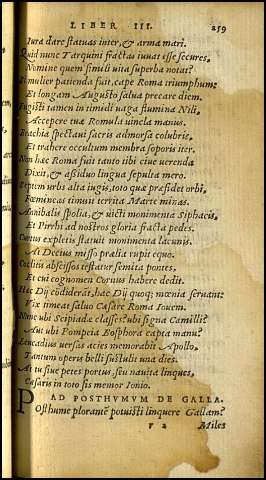 LIBER III. 259
Iura dare statuas inter, & arma mari.
Quid nunc Tarquini fractas iuuat esse secures,
Nomine quem simili uita superba notat?
Si mulier patienda fuit, cape Roma triumphum:
Et longam Augusto salua precare diem.
Fugisti tamen in timidi uaga flumina Nili,
Accepere tuæ Romula uincla manus.
Brachia spectaui sacris admorsa colubris,
Et trahere occultum membra soporis iter.
Non hæc Roma fuit tanto tibi ciue uerenda
Dixit, & aßiduo lingua sepulta mero.
Septem urbs alta iugis, toto quæ præsidet orbi,
Fœmineas timuit territa Marte minas.
Annibalis spolia, & uicti monimenta Siphacis,
Et Pirrhi ad nostros gloria fracta pedes.
Curtius expletis statuit monimenta lacunis,
At Decius misso prælia rupit equo.
Coclitis abscissos testatur semita pontes,
Et cui cognomen Cornus habere dedit.
Hæc Dij cōdiderāt, hæc Dij quoq; mœnia seruant:
Vix timeat saluo Cæsare Roma Iouem.
Nunc ubi Scipiadæ classes? ubi signa Camilli?
Aut ubi Pompeia Bosphora capta manu?
Leucadius uersas acies memorabit Apollo,
Tantum operis belli sustulit una dies.
At tu siue petes portus, seu nauita linques,
Cæsaris in toto sis memor Ionio.
AD POSTHVMVM DE GALLA.
Posthume plorantē potuisti linquere Gallam?
r 2 Miles